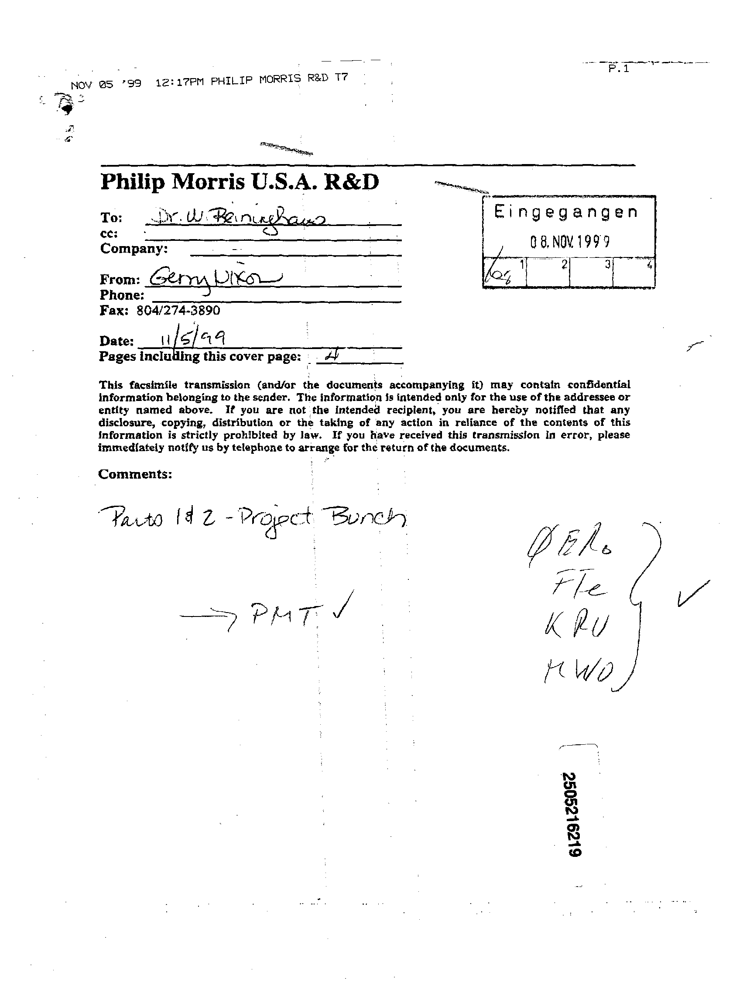 P.1
NOV 05 '99 12:17PM PHILIP MORRIS R&D T7
Philip Morris U.S.A. R&D
To: Dr. W. Reininghaus
cc:
Company:
From: Gerry Nixon
Phone:
Fax: 804/274-3890
Date: 11/5/99
Pages including this cover page: 4
Eingegangen
08. NOV. 1999
1 2 3 4
This facsimile transmission (and/or the documents accompanying it) may contain confidential
information belonging to the sender. The information is intended only for the use of the addressee or
entity named above. If you are not the intended recipient, you are hereby notified that any
disclosure, copying, distribution or the taking of any action in reliance of the contents of this
information is strictly prohibited by law. If you have received this transmission in error, please
immediately notify us by telephone to arrange for the return of the documents.
Comments:
Parts 1 & 2 - Project Bunch
→ PMT. ✓
FTe ✓
KRU
MWO
2505216219